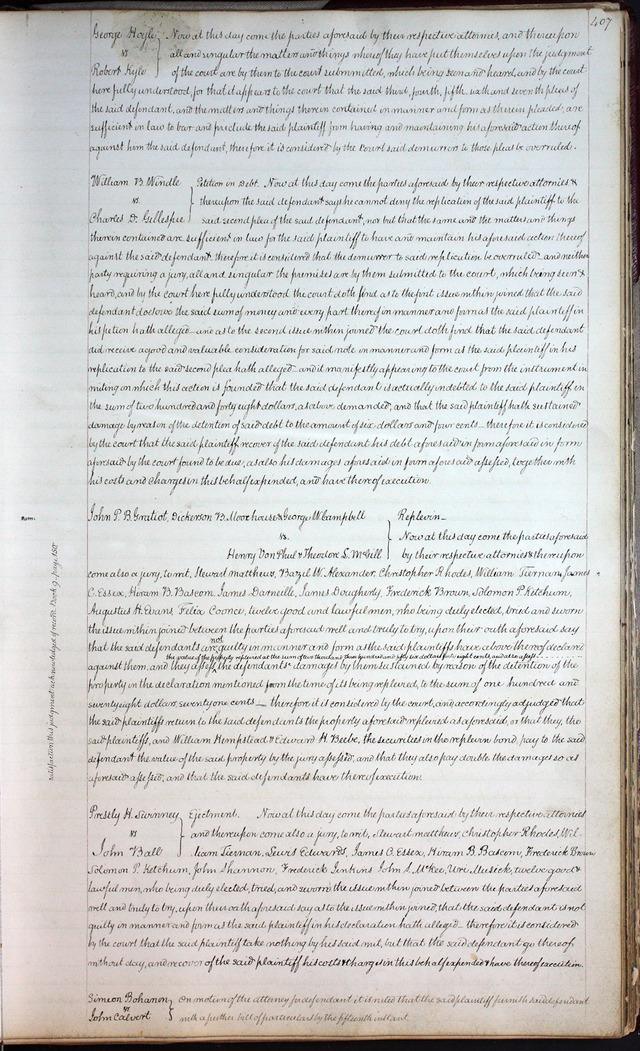 407
George Hoyle } Now at this day come the parties aforesaid by their respective attornies, and thereupon
vs all and singular the matters and things whereof they have put themselves upon the judgment
Robert Kyle of the court are by them to the court submitted, which being seen and heard, and by the court
here fully understood, for that it appears to the court that the said third, fourth, fifth, sixth and seventh pleas of
the said defendant, and the matters and things therein contained in manner and form as therein pleaded, are
sufficient in law to bar and preclude the said plaintiff from having and maintaining his aforesaid action thereof
against him the said defendant, therefore it is considered by the Court said demurrer to those pleas be overruled.
William B Windle } Petition in Debt. Now at this day come the parties aforesaid by their respective attornies &
vs. thereupon the said defendant says he cannot deny the replication of the said plaintiff to the
Charles D. Gillespie said second plea of the said defendant, nor but that the same and the matters and things
therein contained are sufficient in law for the said plaintiff to have and maintain his aforesaid action thereof
against the said defendant. therefore it is considered that the demurrer to said replication be overruled and neither
party requiring a jury, all and singular the premises are by them submitted to the court, which being seen &
heard, and by the court here fully understood the court doth find as to the first issue within joined that the said
defendant doth owe the said sum of money and every part thereof in manner and form as the said plaintiff in
his petion hath alleged and as to the second issue within joined the court doth find that the said defendant
did receive a good and valuable consideration for said note in manner and form as the said plaintiff in his
replication to the said second plea hath alleged and it manifestly appearing to the court from the instrument in
writing on which this action is founded that the said defendant is actually indebted to the said plaintiff in
the sum of two hundred and forty eight dollars, as above demanded, and that the said plaintiff hath sustained
damage by reason of the detention of said debt to the amount of six dollars and four cents therefore it is considered
by the court that the said plaintiff recover of the said defendant his debt aforesaid in form aforesaid in form
aforesaid by the court found to be due, as also his damages aforesaid in form aforesaid assessed, together with
his costs and charges in this behalf expended, and have thereof execution.
John P. B. Gratiot, Dickerson B Moorhouse & George W Campbell } Replevin
vs. Now at this day come the parties aforesaid
Henry Von Phul & Theodore L. McGill by their respective attornies & thereupon
come also a jury, to wit, Steward Matthews, Bazil W. Alexander, Christopher Rhodes, William Tiernan, James
C. Essex, Hiram B Bascom James Barneille, James Dougherty, Frederick Brown, Solomon P. Ketchum,
Augustus H. Evans Felix Coonce, twelve good and lawful men, who being duly elected, tried and sworn
the issue within joined between the parties aforesaid well and truly to try, upon their oath aforesaid say
that the said defendants are not guilty in manner and form as the said plaintiffs have above thereof declared
the value of the property replevined at the sum of two thousand
against them, and they assess the defendants' damages by them sustained by reason of the detention of the
property in the declaration mentioned from the time of its being replevied, to the sum of one hundred and
seventy eight dollars, seventy one cents therefore it is considered by the court, and accordingly adjudged that
the said plaintiffs return to the said defendants the property aforesaid replevied as aforesaid, or that they, the
said plaintiffs, and William Hempstead & Edward H. Beebe, the securities in the replevin bond, pay to the said
defendant the value of the said property by the jury assessed, and that they also pay double the damages so as
aforesaid assessed, and that the said defendants have thereof execution.
satisfaction this judgment acknowledged of record. Book 9. page 150
Presly H. Swinney } Ejectment. Now at this day come the parties aforesaid by their respective attornies
vs and thereupon come also a jury, to wit, Stewart Matthews, Christopher Rhodes, Wil-
John Ball liam Tiernan, Lewis Edwards, James C. Essex, Hiram B. Bascom, Frederick Brown
Solomon P. Ketchum, John Shannon, Frederick Jenkins John S. McKee, Uri Musick, twelve good &
lawful men, who being duly elected, tried, and sworn the issue within joined between the parties aforesaid
well and truly to try, upon their oath aforesaid say as to the issue within joined, that the said defendant is not
guilty in manner and form as the said plaintiff in his declaration hath alleged therefore it is considered
by the court that the said plaintiff take nothing by his said writ, but that the said defendant go thereof
without day, and recover of the said plaintiff his costs & charges in this behalf expended & have thereof execution.
Simeon Bohanon } On motion of the attorney for defendant it is ruled that the said plaintiff furnish said defendant
vs
John Calvert with a further bill of particulars by the fifteenth instant.